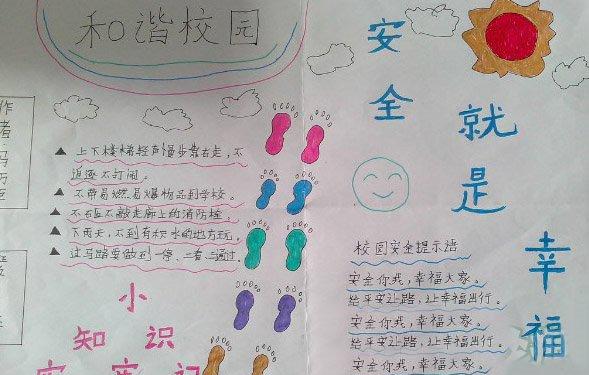 和谐校园
作
者
马
万
▲ 上下楼梯轻声慢步靠右走,不
追逐不打闹。
▲ 不带易燃易爆物品到学校。
▲ 不压不敲走廊上的消防栓。
▲ 下雨天,不到有积水的地方玩。
▲ 过马路要做到一停、二看、三通过。
小
知识
安全
就是
幸福
校园安全提示语
安全你我,幸福大家。
给平安让路,让幸福出行。
安全你我,幸福大家。
给平安让路,让幸福出行。
安全你我,幸福大家。